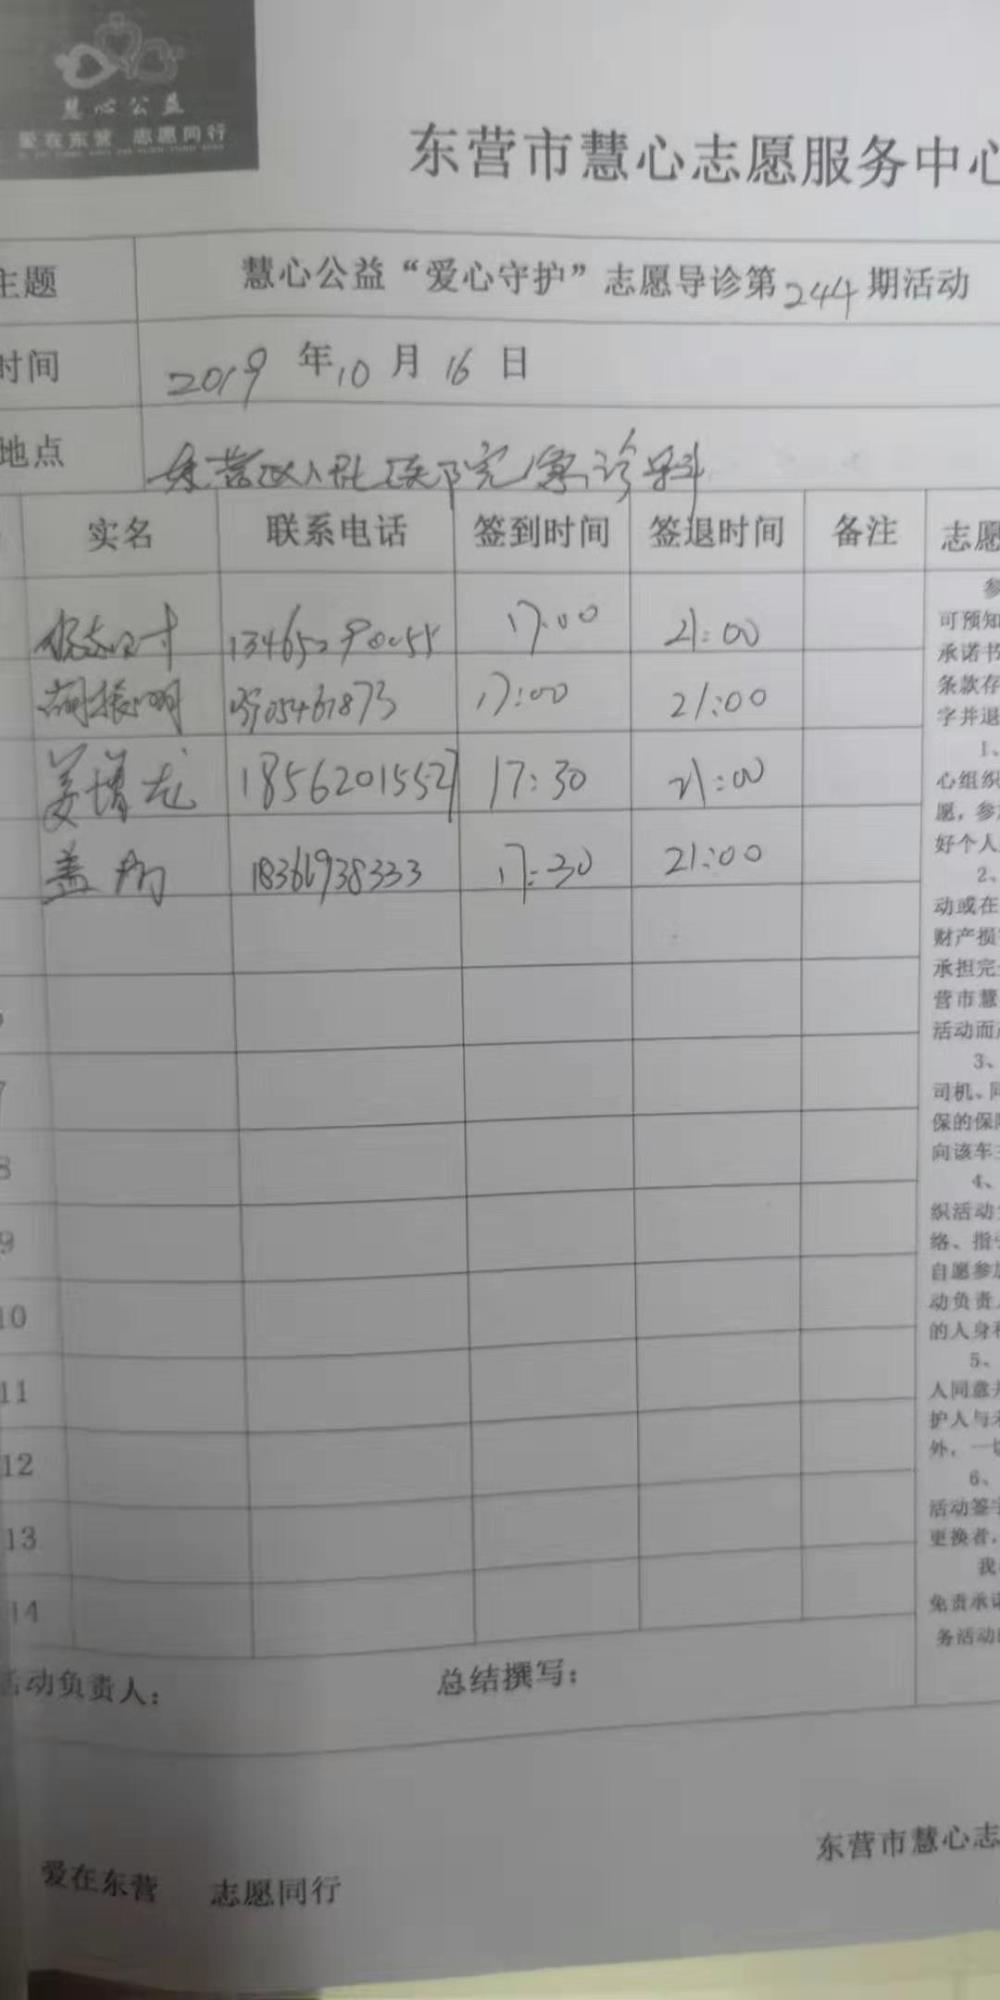 慧心公益
爱在东营 志愿同行
东营市慧心志愿服务中心
主题 慧心公益“爱心守护”志愿导诊第244期活动
时间 2019年10月16日
地点 东营区人民医院急诊科
实名 联系电话 签到时间 签退时间 备注 志愿
17:00 21:00
胡振明 17:00 21:00
姜增龙 18562015527 17:30 21:00
盖 18366938333 17:30 21:00
7
8
9
10
11
12
13
14
参
可预知
承诺书
条款存
字并退
1、
心组织
愿，参加
好个人
2、
动或在
财产损
承担完全
营市慧
活动而
3、
司机、同
保的保
向该车
4、
织活动
络、指
自愿参加
动负责
的人身
5、
人同意
护人与未
外，一切
6、
活动签字
更换者，
我
免责承诺
务活动
活动负责人： 总结撰写：
东营市慧心志
爱在东营 志愿同行